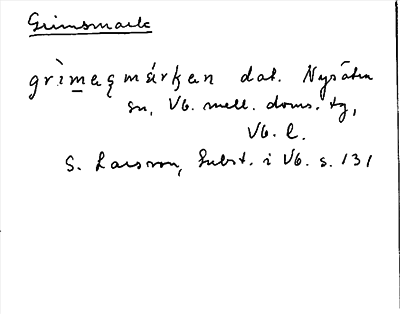 Grimsmark
grìmeʂmárʂen dat. Nysätra
sn, Vb. mell. doms. tg,
Vb. l.
S. Larsson, Subst. i Vb. s. 131